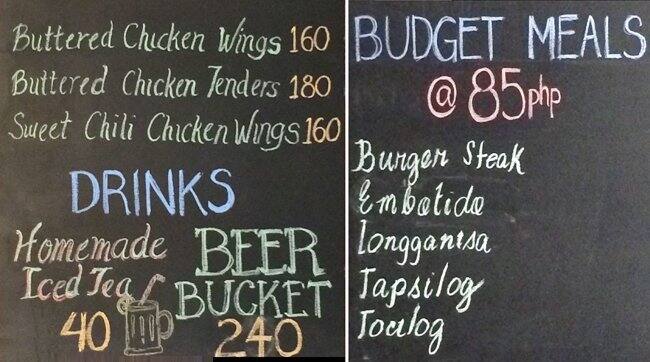 Buttered Chicken Wings 160
Buttered Chicken Tenders 180
Sweet Chili Chicken Wings 160
DRINKS
Homemade
Iced Tea
40
BEER
BUCKET
240
BUDGET MEALS
@ 85php
Burger Steak
Embotido
longganisa
Tapsilog
Tocilog